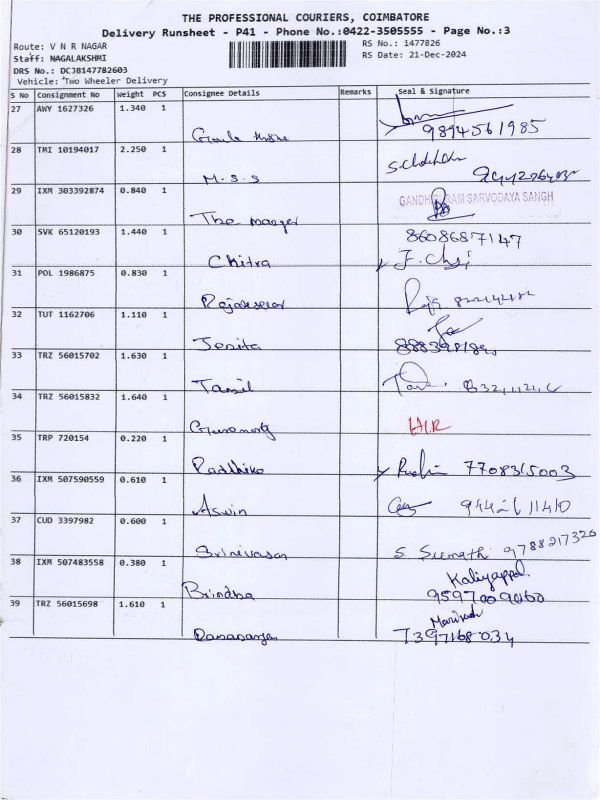 THE PROFESSIONAL COURIERS, COIMBATORE
Delivery Runsheet - P41 - Phone No.:0422-3505555 - Page No.:3
Route: V N R NAGAR RS No.: 1477826
Staff: NAGALAKSHMI RS Date: 21-Dec-2024
DRS No.: DCJB147782603
Vehicle: Two Wheeler Delivery
S No Consignment No Weight PCS Consignee Details Remarks Seal & Signature
27 AWY 1627326 1.340 1
9894561985
28 TMI 10194017 2.250 1
M.S.S
29 IXM 303392874 0.840 1 SARVODAYA SANGH
The
30 SVK 65120193 1.440 1 8608687147
Chitra
31 POL 1986875 0.830 1
32 TUT 1162706 1.110 1
Jenita
33 TRZ 56015702 1.630 1
Tamil
34 TRZ 56015832 1.640 1 H.R
35 TRP 720154 0.220 1
Radhika 7708315003
36 IXM 507590559 0.610 1
Aswin
37 CUD 3397982 0.600 1
Srinivasan S. 9788217320
38 IXM 507483558 0.380 1
Brindha
39 TRZ 56015698 1.610 1
7397168034